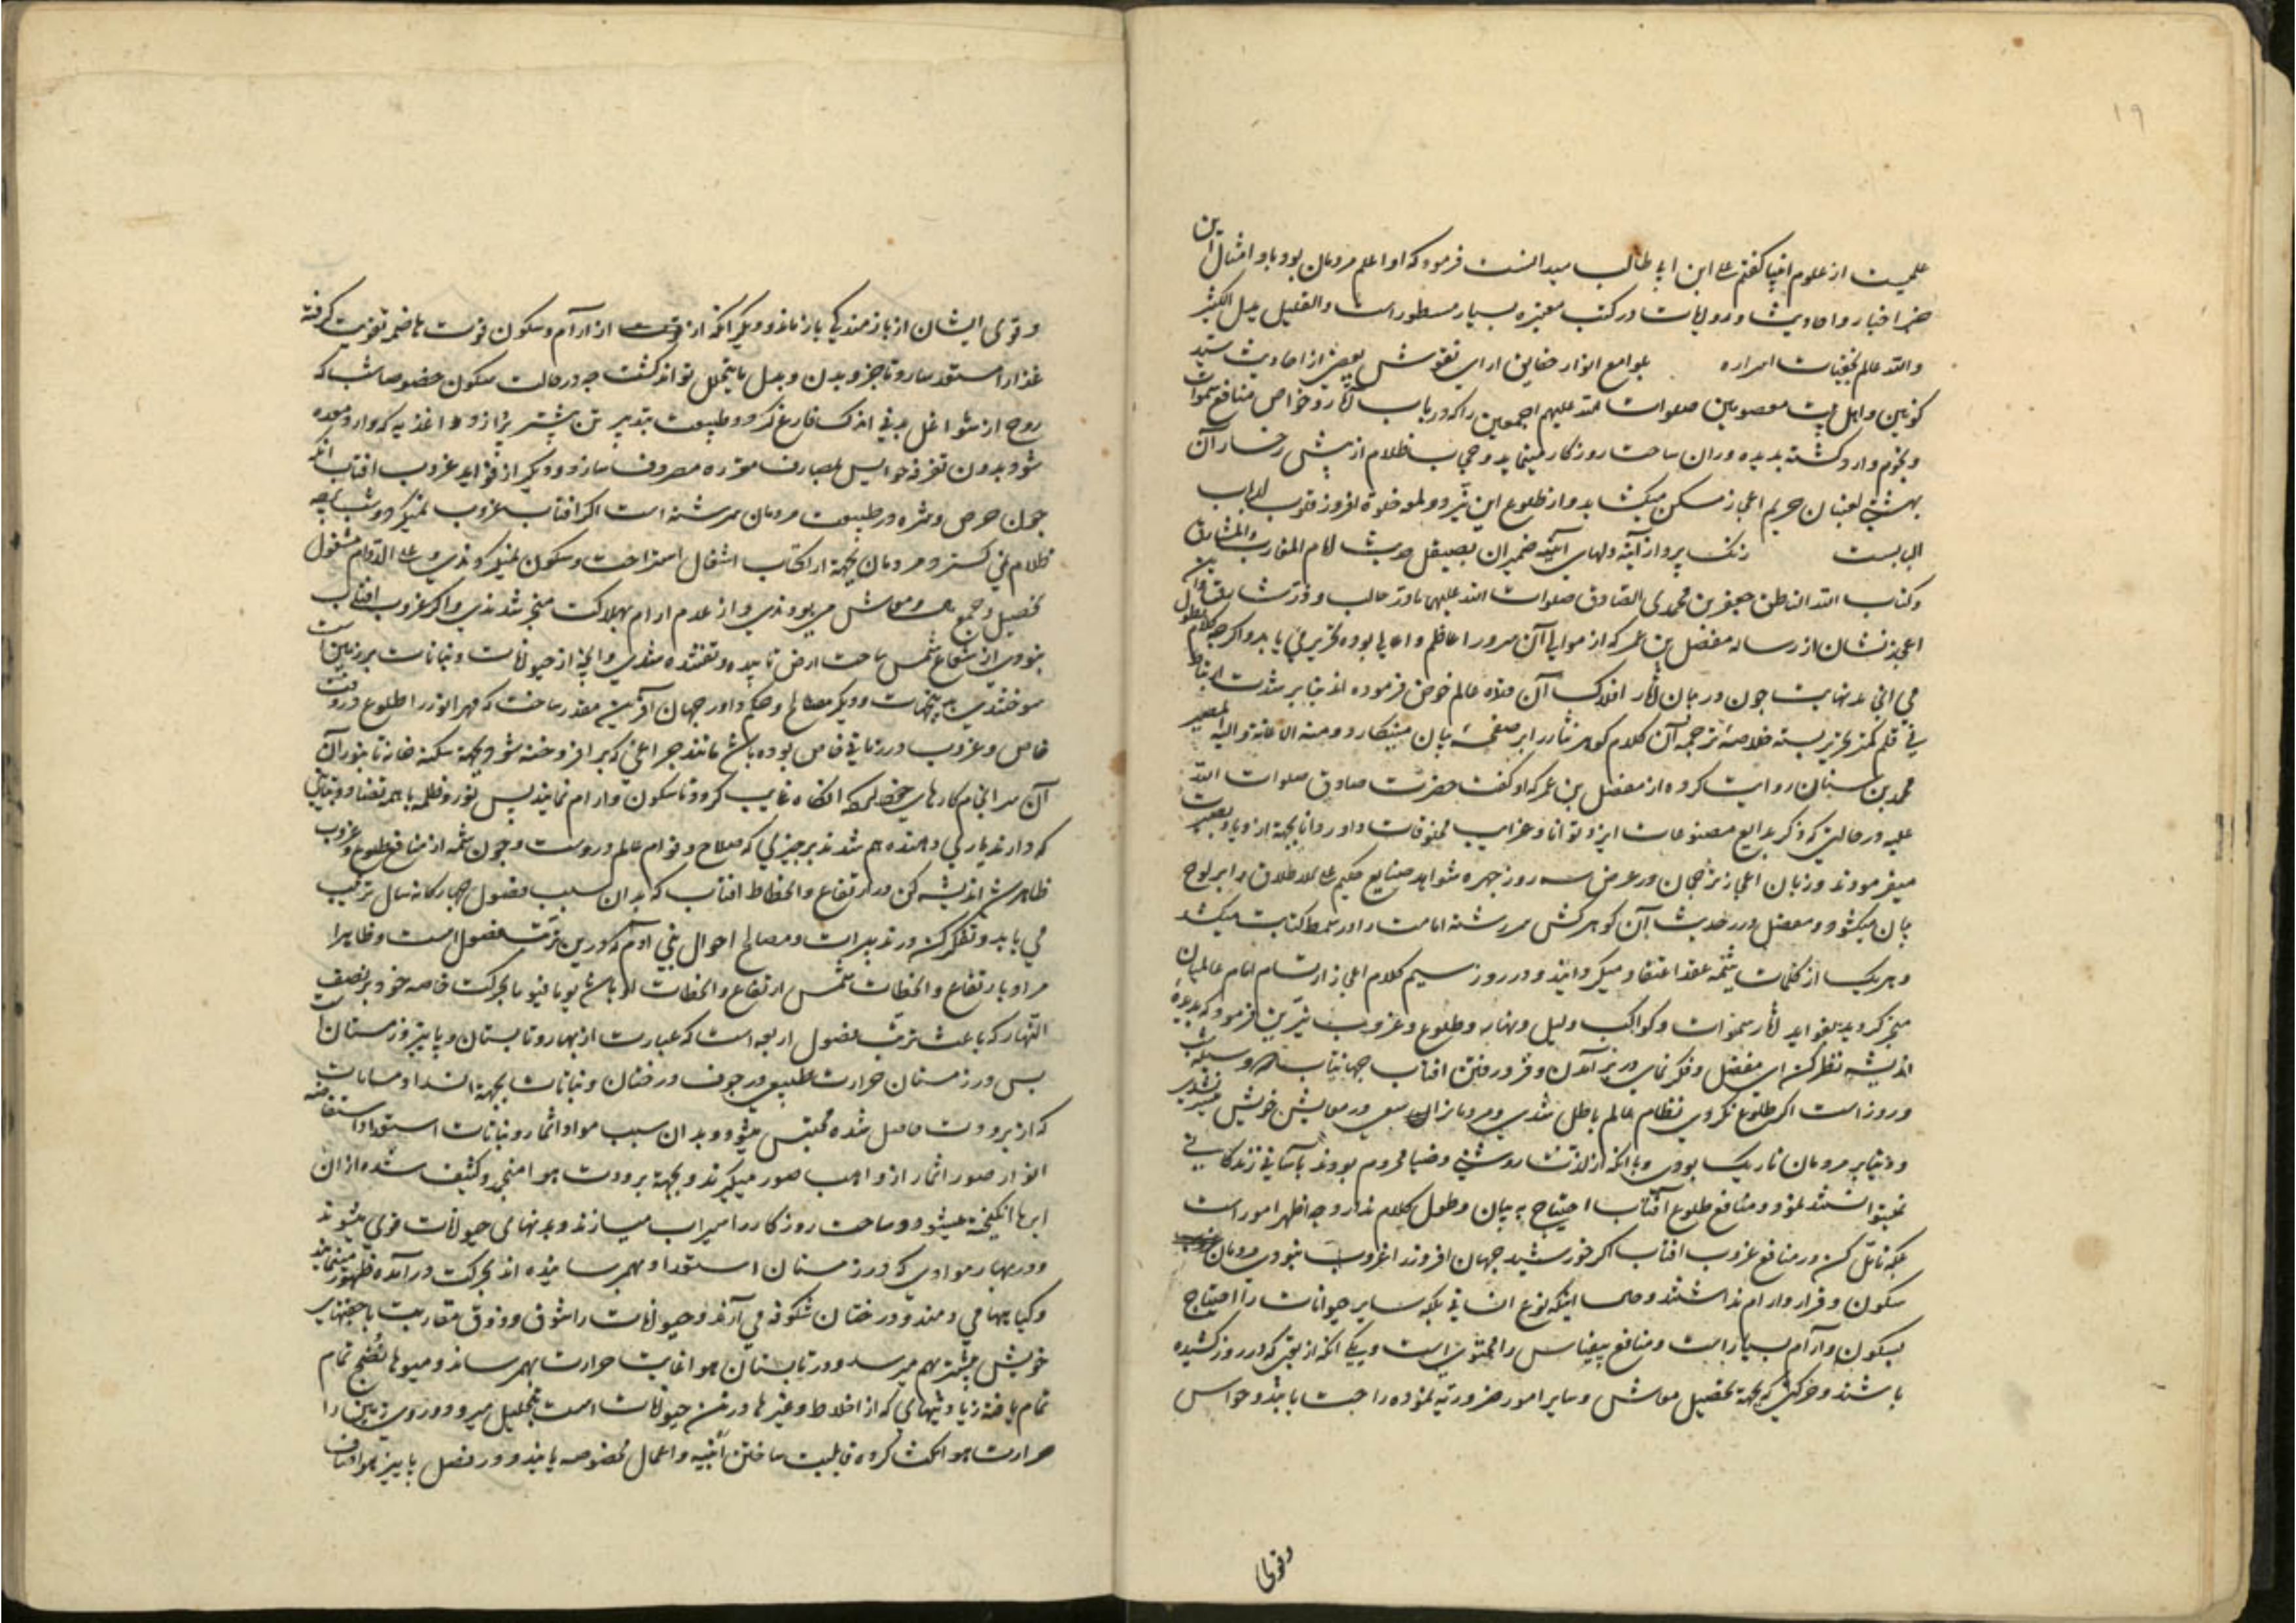 ۱۹
علمیست از علوم انبیا گفتم علی ابن ابی طالب میدانست فرمود که او اعلم مردمان بود باو امثال این
خبر اخبار و احادیث و روایات در کتب معتبره بسیار مسطور است و القلیل یدل الکثیر
والله عالم بخفیات اسراره بلوامع انوار حقایق ارای نقوش بعضی از احادیث سید
کونین و اهل بیت معصومین صلوات الله علیهم اجمعین را که در باب آثار و خواص منافع سموات
و نجوم وارد گشته بدیده وران ساحت روزگار مینماید و حجاب ظلام از پیش رخسار آن
بهشتی لعبتان حریم اعجاز مسکن میگشاید و از طلوع این نیر دولمعه خلوة افروز قلوب ارباب
الباب است زنک پرداز آینه دلهای آینه ضمیران بصیقل حدیث امام المغارب والمشارق
و کتاب الله الناطق جعفر بن محمد الصادق صلوات الله علیهما
اعجاز نشان از رساله مفضل بن عمر که از موالی آن سرور اعاظم و اعالی بوده تحریر می یابد و اگرچه کلام بطول
می انجامد نهایت چون در بیان آثار افلاک آن مقتدای عالم خوض فرموده اند بنابر شدت ارتباط
نی قلم کمر تحریر بسته خلاصه ترجمه آن کلام گوهر نثار را بر صفحه بیان مینگارد و منه الاعانة والیه المصیر
محمد بن سنان روایت کرده از مفضل بن عمر که او گفت حضرت صادق صلوات الله
علیه در حالتی که ذکر بدایع مصنوعات ایزد توانا و غرایب مخلوقات داور دانا بجهة ازدیاد بصیرت
میفرمودند و زبان اعجاز ترجمان در عرض سه روز چهره شواهد صنایع حکیم علی الاطلاق را بر لوح
بیان میگشود و مفضل درر حدیث آن گوهر کش سررشته امامت را در سمط کتابت میکشد
و هر یک از کلمات یتیمه عقد اعتقاد میگردانید و در روز سیم کلام اعجاز ارتسام امام عالمیان
منجر گردید بفواید آثار سموات و کواکب و لیل و نهار و طلوع و غروب نیرین فرمود که بدیده
اندیشه نظر کن ای مفضل و فکر نمای در بر آمدن و فرو رفتن آفتاب جهانتاب
و روز است اگر طلوع نکردی نظام عالم باطل شدی و مردمانرا سعی در معایش خویش میسر نشدی
و دنیا بر مردمان تاریک بودی و با آنکه از لذت روشنی و ضیا محروم بودند بآسانی زندگانی
نمیتوانستند نمود و منافع طلوع آفتاب احتیاج به بیان و طول کلام ندارد چه اظهر امور است
بلکه تأمل کن در منافع غروب آفتاب اگر خورشید جهان افروز را غروب نبودی مردمان
سکون و قرار و ارام نداشتند و حال اینکه نوع انسانی بلکه سایر حیوانات را احتیاج
بسکون و آرام بسیار است و منافع بیقیاس را محتوی است و یکی آنکه از تعبی که در روز کشیده
باشند و حرکتی که بجهة تحصیل معاش و سایر امور ضروریه نموده راحت یابند و حواس
وقوای
و قوی ایشان از بازماندگی بازماند و دیگر آنکه از آرام و سکون قوت هاضمه تقویت گرفته
غذا را مستعد سازد تا جزو بدن و بدل ما یتحلل تواند گشت چه در حالت سکون خصوصا شب که
روح از شواغل بدنی اندک فارغ گردد و طبیعت بتدبیر تن بیشتر پردازد و اغذیه که وارد معده
شود بدون تفرقه حواس بمصارف مقرره مصروف سازد و دیگر از فواید غروب آفتاب آنکه
چون حرص و شره در طبیعت مردمان سرشته است اگر آفتاب غروب نمیکرد و شب جامه
ظلام نمی گسترد مردمان بجهة ارتکاب اشغال استراحت و سکون نمیکردندی و علی الدوام مشغول
تحصیل و جمع معاش می بودندی و از عدم ارام بهلاکت منجر شدندی و اگر غروب آفتاب
نبودی از شعاع شمس ساحت ارض تابیده و تفتیده شدی و آنچه از حیوانات و نباتات بر زمین است
سوختندی و دیگر مصالح و حکم داور جهان آفرین مقدر ساخت که مهر انور را طلوع در وقت
خاص و غروب در زمانی خاص بوده باشد مانند چراغی که بر افروخته شود بجهة سکنه خانه تا بنور آن
آن سرانجام کارهای خود کنند آنگاه غایب گردد تا سکون و ارام نمایند پس نور و ظلمه باهم تضاد و تباینی
که دارند یاری دهنده هم شدند بر چیزی که صلاح و قوام عالم دروست و چون شمه از منافع طلوع و غروب
ظاهر شد اندیشه کن در ارتفاع و انحطاط افتاب که بدان سبب فصول چهارگانه سال ترتیب
می یابد و تفکر کن در تدبیرات و مصالح احوال بنی آدم که در این ترتیب فصول است و ظاهرا
مراد بارتفاع و انحطاط شمس ارتفاع و انحطاط او باشد یوما فیوما بحرکت خاصه خود بر نصف
النهار که باعث ترتب فصول اربعه است که عبارت از بهار و تابستان و پاییز و زمستان است
پس در زمستان حرارت طبیعی در جوف درختان و نباتات بجهة انسداد مسامات
که از برودت حاصل شده محتبس میشود و بدان سبب مواد اثمار و نباتات استعداد استفاضه
انوار صور اثمار از واهب صور میگیرند و بجهة برودت هوا منجمد و کثیف شده از ان
ابرها انگیخته میشود و ساحت روزگار را سیراب میسازند و بدنهای حیوانات قوی میشوند
و در بهار موادی که در زمستان استعداد بهمرسانیده اند بحرکت در آمده ظهور مینمایند
و گیاهها می دمند و درختان شکوفه می آرند و حیوانات را شوق و ذوق مقاربت با جفتهای
خویش بیشتر بهم میرسد و در تابستان هوا غایت حرارت بهمرساند و میوها نضج تمام
تمام یافته زیادتیهای که از اخلاط و غیرها در تن حیوانات است بتحلیل میرود و روی زمین را
حرارت هوا خشک کرده قابلیت ساختن ابنیه و اعمال مخصوصه یابند و در فصل پاییز هوا صاف